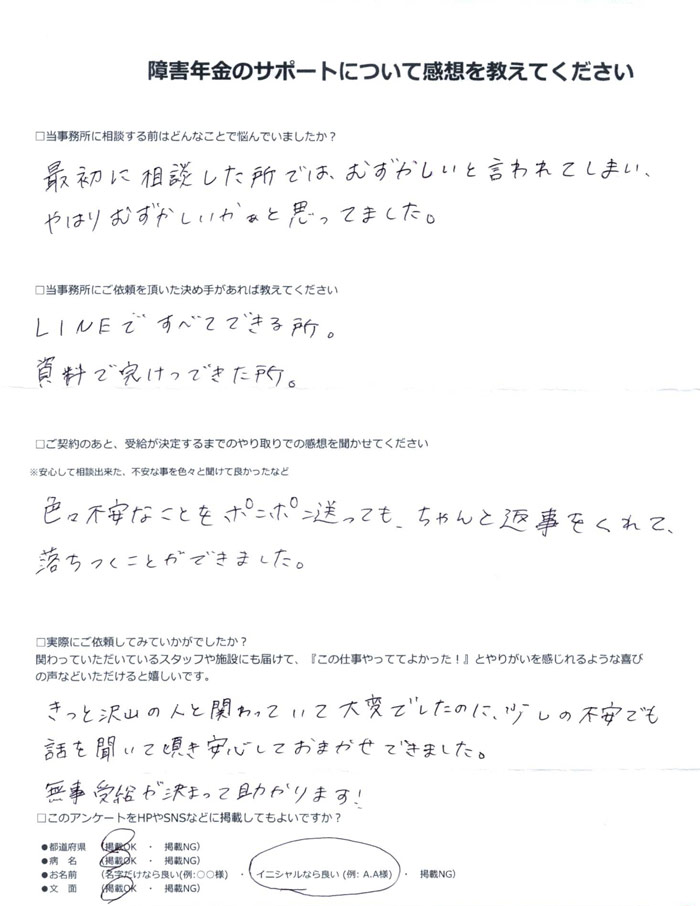 障害年金のサポートについて感想を教えてください
□当事務所に相談する前はどんなことで悩んでいましたか？
最初に相談した所では、むずかしいと言われてしまい、
やはりむずかしいかぁと思ってました。
□当事務所にご依頼を頂いた決め手があれば教えてください
LINEですべてできる所。
資料で完けつできた所。
□ご契約のあと、受給が決定するまでのやり取りでの感想を聞かせてください
※安心して相談出来た、不安な事を色々と聞けて良かったなど
色々不安なことをポンポン送っても、ちゃんと返事をくれて、
落ちつくことができました。
□実際にご依頼してみていかがでしたか？
関わっていただいているスタッフや施設にも届けて、『この仕事やっててよかった！』とやりがいを感じれるような喜び
の声などいただけると嬉しいです。
きっと沢山の人と関わっていて大変でしたのに、少しの不安でも
話を聞いて頂き安心しておまかせできました。
無事受給が決まって助かります!
□このアンケートをHPやSNSなどに掲載してもよいですか？
●都道府県 (掲載OK ・ 掲載NG)
●病 名 (掲載OK ・ 掲載NG)
●お名前 (名字だけなら良い(例:○○様) ・ イニシャルなら良い (例: A.A様) ・ 掲載NG)
●文 面 (掲載OK ・ 掲載NG)